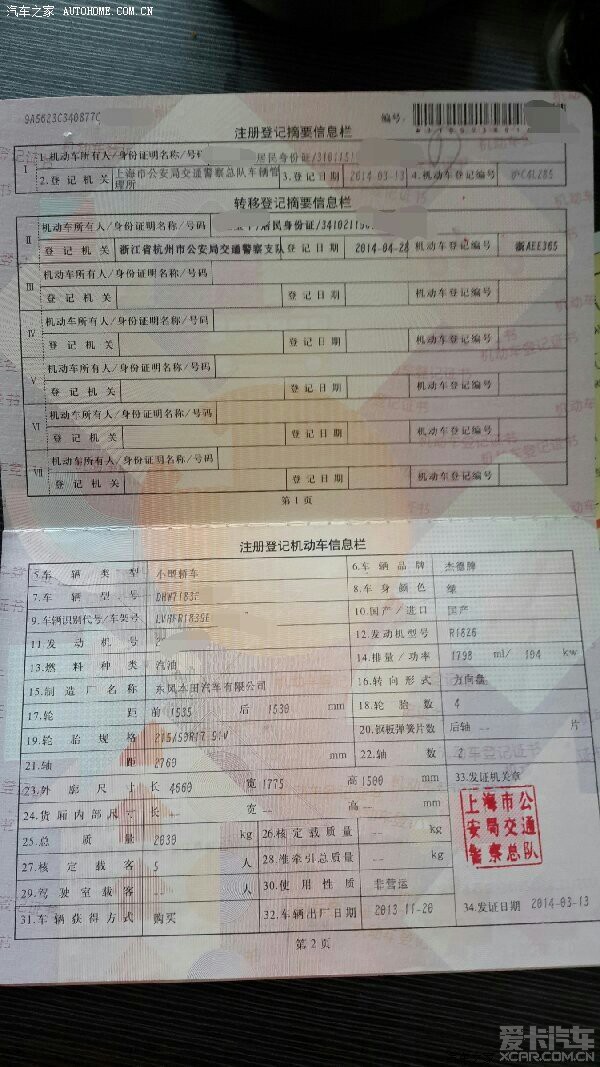 汽车之家 AUTOHOME.COM.CN
9A5623C340877C 编号:
注册登记摘要信息栏
I 1.机动车所有人/身份证明名称/号码 居民身份证/3101151
2.登记机关 上海市公安局交通警察总队车辆管理所 3.登记日期 2014-03-13 4.机动车登记编号
转移登记摘要信息栏
II 机动车所有人/身份证明名称/号码 /居民身份证/34102119
登记机关 浙江省杭州市公安局交通警察支队 登记日期 2014-04-28 机动车登记编号 浙AEE365
III 机动车所有人/身份证明名称/号码
登记机关 登记日期 机动车登记编号
IV 机动车所有人/身份证明名称/号码
登记机关 登记日期 机动车登记编号
V 机动车所有人/身份证明名称/号码
登记机关 登记日期 机动车登记编号
VI 机动车所有人/身份证明名称/号码
登记机关 登记日期 机动车登记编号
VII 机动车所有人/身份证明名称/号码
登记机关 登记日期 机动车登记编号
第1页
注册登记机动车信息栏
5.车辆类型 小型轿车 6.车辆品牌 杰德牌
7.车辆型号 8.车身颜色
9.车辆识别代号/车架号 10.国产/进口 国产
11.发动机号 12.发动机型号 R18Z6
13.燃料种类 汽油 14.排量/功率 1798 ml/ 104 kw
15.制造厂名称 东风本田汽车有限公司 16.转向形式 方向盘
17.轮距 前 1535 后 1530 mm 18.轮胎数 4
19.轮胎规格 215/50R17 91V 20.钢板弹簧片数 后轴 -- 片
21.轴距 2760 mm 22.轴数 2
23.外廓尺寸 长 4660 宽 1775 高 1500 mm 33.发证机关章
24.货厢内部尺寸 长 -- 宽 -- 高 -- mm
上海市公安局交通警察总队
25.总质量 2030 kg 26.核定载质量 -- kg
27.核定载客 5 人 28.准牵引总质量 -- kg
29.驾驶室载客 -- 人 30.使用性质 非营运
31.车辆获得方式 购买 32.车辆出厂日期 2013-11-20 34.发证日期 2014-03-13
第2页
爱卡汽车
XCAR.COM.CN